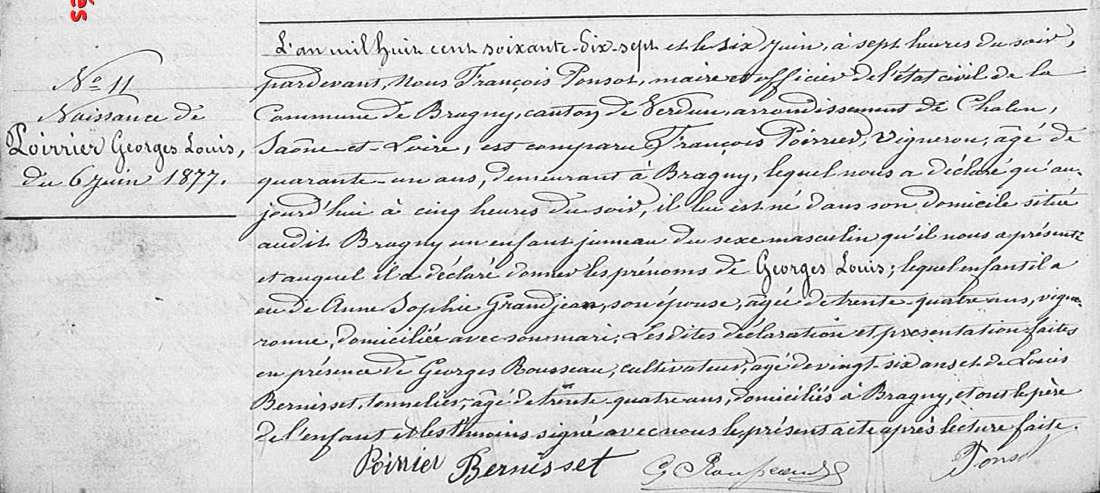 és
N° 11
Naissance de
Poirrier Georges Louis,
du 6 Juin 1877.
L'an mil huit cent soixante-dix-sept et le six Juin, à sept heures du soir,
pardevant, Nous François Ponsot, maire et officier de l'état civil de la
Commune de Bragny, canton de Verdun, arrondissement de Chalon,
Saône-et-Loire, est comparu François Poirrier, Vigneron, âgé de
quarante-un ans, demeurant à Bragny, lequel nous a déclaré qu'au-
jourd'hui à cinq heures du soir, il lui est né dans son domicile situé
audit Bragny un enfant jumeau du sexe masculin qu'il nous a présenté
et auquel il a déclaré donner les prénoms de Georges Louis; lequel enfant il a
eu de Anne Sophie Grandjean, son épouse, agée de trente-quatre ans, vigne-
ronne, domiciliée avec son mari; Les dites déclaration et présentation faites
en présence de Georges Rousseau, cultivateur, âgé de vingt-six ans et de Louis
Bernisset, tonnelier, âgé de trente-quatre ans, domiciliés à Bragny, et ont le père
de l'enfant et les témoins signé avec nous le présent acte après lecture faite.
Poirrier Bernisset G Rousseau Ponsot